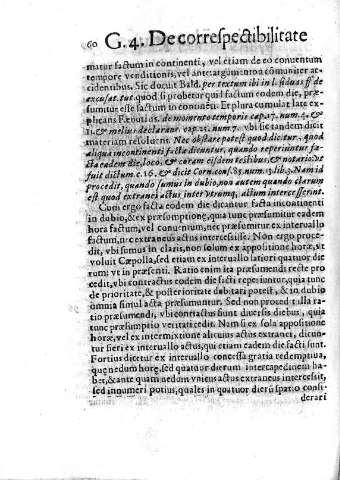 60 G. 4. De correspectibilitate
matur factum in continenti, vel etiam de eo conuentum
tempore venditionis, vel ante: argum. cómuniter ac-
cidentibus. Sic docuit Bald. per textum ibi in l. siduas ff. de
excusat. tut. quod si probetur quid factum eodem die, præ-
sumitur esse factum in continéti. Et plura cumulat late ex-
plicans de momento temporis cap. 17. num. 4. &
11. & melius declarat cap. 25. num. 7. vbi sic tandem dicit
materiam resoluens. Nec obstare potest quod dicitur, quod
aliqua incontinenti facta dicuntur, quando reperiuntur fa-
cta eadem die, loco, & coram eisdem testibus, & notario: vt
fuit dictum c. 16. & dicit Corn. con. 85. num. 3. lib. 3. Nam id
procedit, quando sumus in dubio, non autem quando clarum
est quod extranei actus inter vtrumq, actum intercesserint.
Cum ergo facta eodem die dicantur facta incontinenti
in dubio, & ex præsumptione, quia tunc præsumitur eadem
hora factum, vel conuentum, nec præsumitur ex interuallo
factum, nec extraneus actus intercessisse. Non ergo proce-
dit, vbi sumus in claris, non solum ex appositione horæ, vt
voluit Cæpolla, sed etiam ex interuallo latiori quatuor die-
rum: vt in præsenti. Ratio enim ita præsumendi recte pro
cedit, vbi contractus eodem die facti reperiuntur, quia tunc
de prioritate, & posterioritate dubitari potest, & in dubio
omnia simul acta præsumuntur. Sed non proced t illa ra-
tio præsumendi, vbi contractus sunt diuersis diebus, quia
tunc præsumptio veritati cedit. Nam si ex sola appositione
horæ, vel ex intermixtione alicuius actus extranei, dicun-
tur fieri ex interuallo actus, qui etiam eadem die facti sunt.
Fortius dicetur ex interuallo concessa gratia redemptiua,
que nedum horę, sed quatuor dierum intercapedinem ha-
bet, & ante quam nedum vniens actus extraneus intercessit,
sed innumeri potius, quales in quatuor dierũ spatio consi-
derari